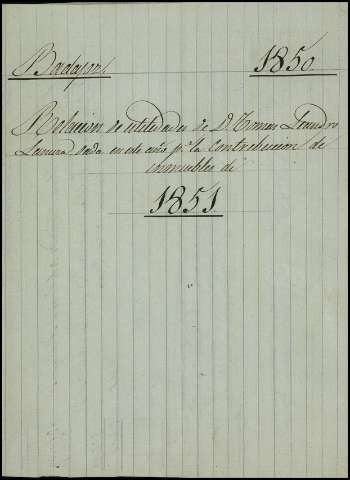 Badajoz 1850
Relacion de utilidades de D. Tomas Leandro
dada en este año pa. la Contribucion de
inmuebles de
1851.